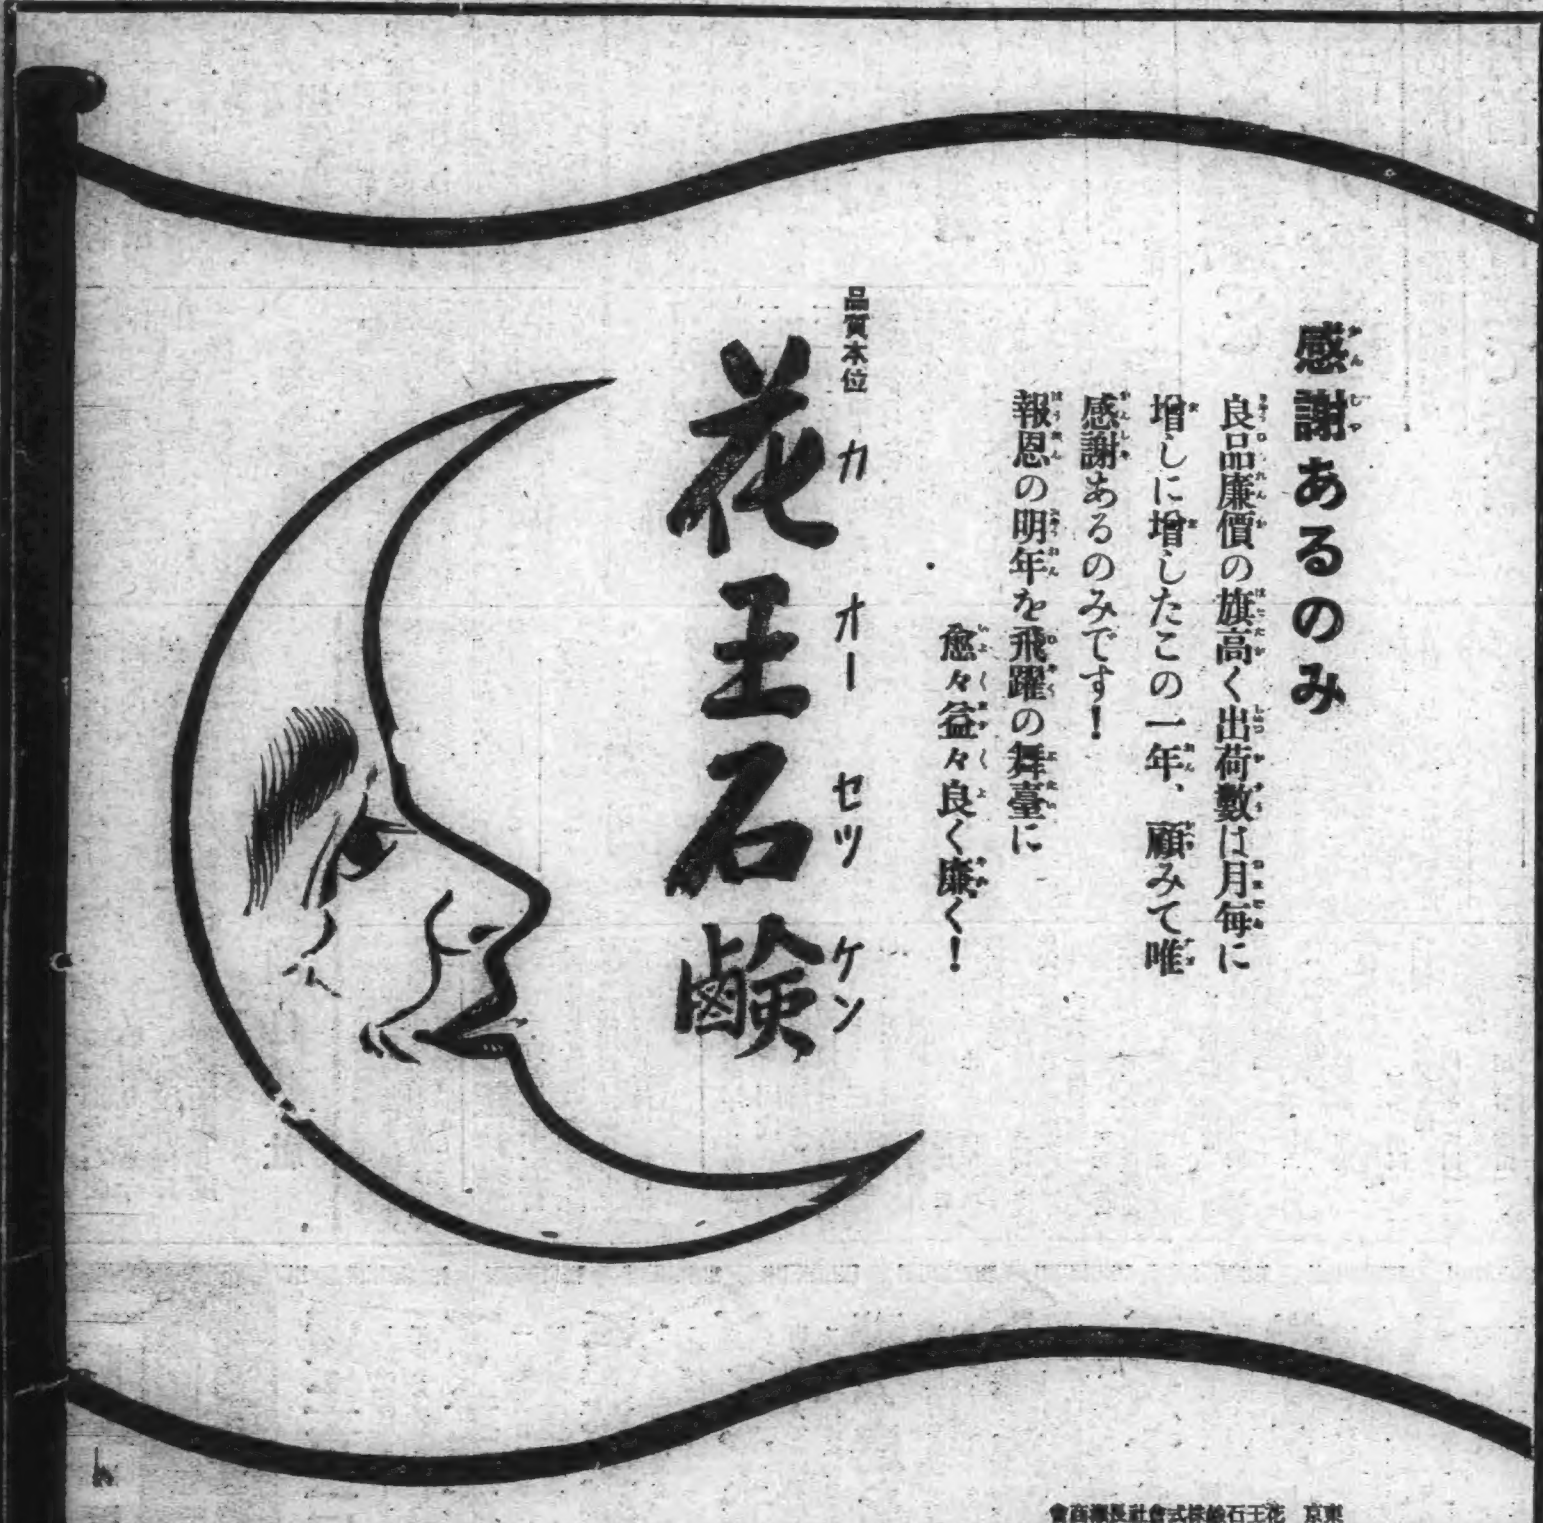 感謝あるのみ
良品廉價の旗高く出荷數は月毎に
増しに増したこの一年、顧みて唯
感謝あるのみです!
報恩の明年を飛躍の舞臺に
愈々益々良く廉く!
品質本位
カオーセッケン
花王石鹸
東京 花王石鹸株式會社長瀬商會